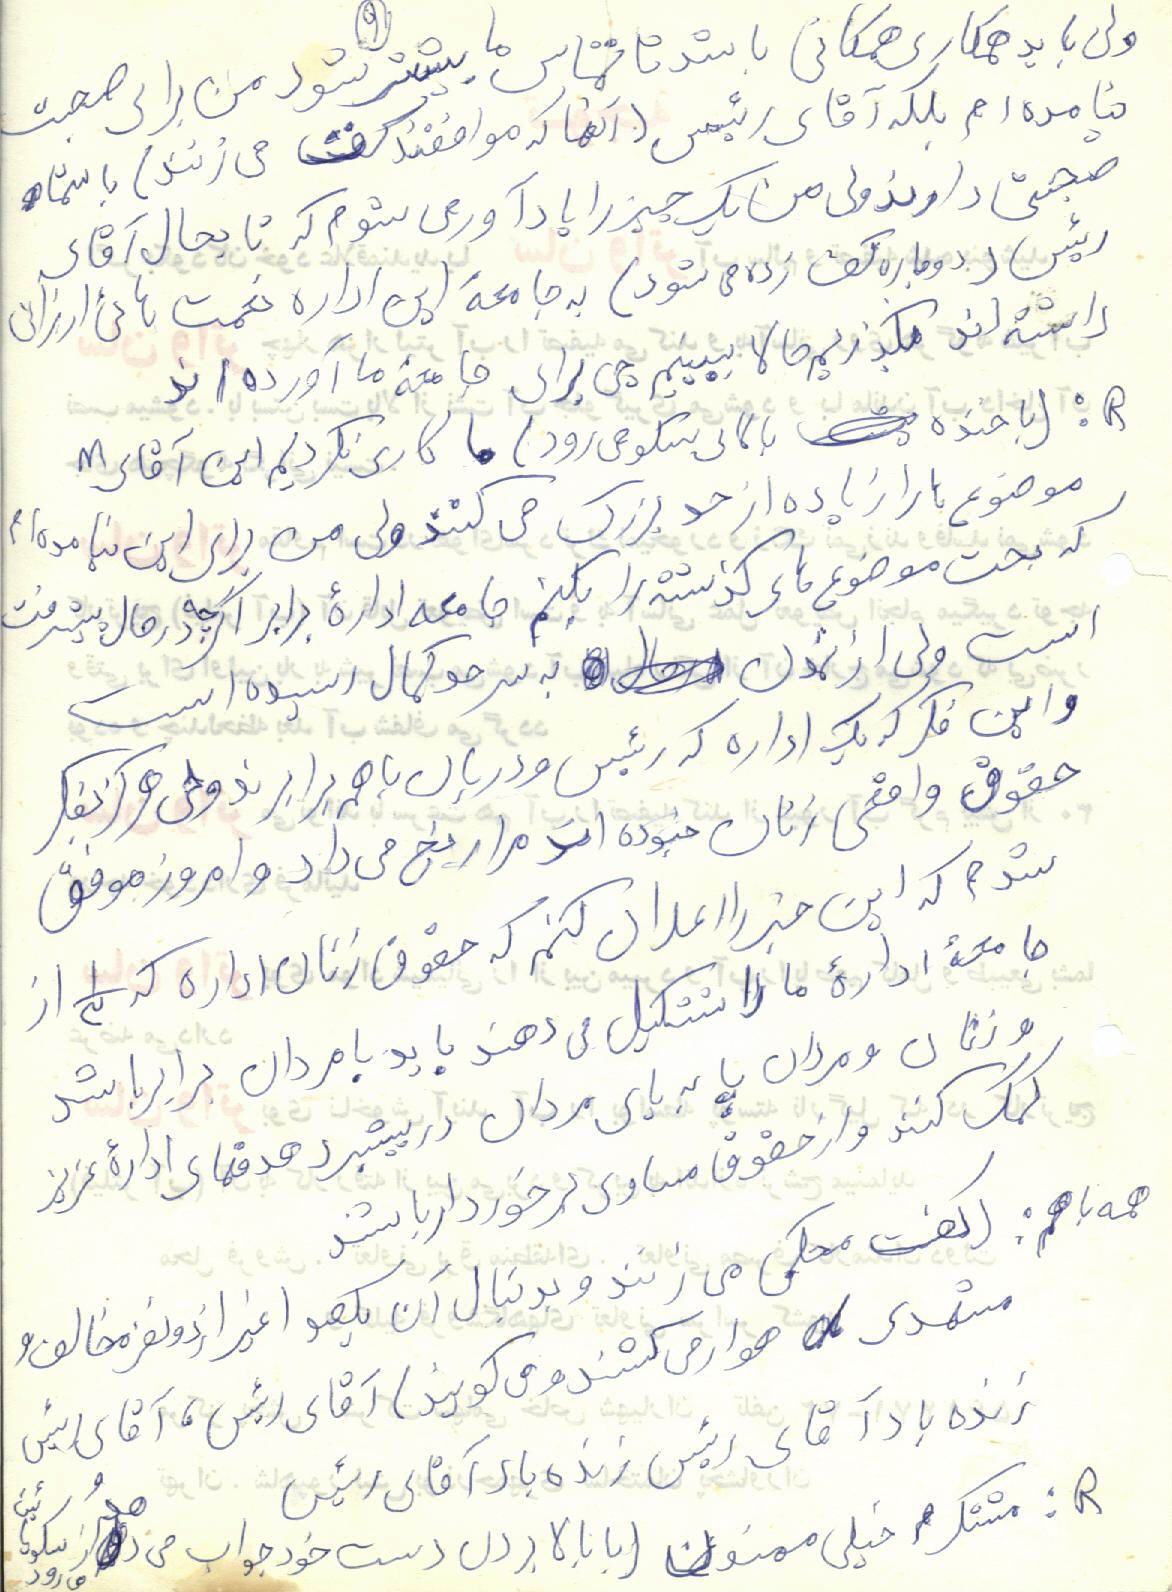 (۹)
ولی باید همکاری همگانی باشد تا تماس ما بیشتر شود من برای صحبت
نیامده ام بلکه آقای رئیس (آنها که موافقند کف می زنند) با شما
صحبتی دارند ولی من یک چیز را یاد آور می شوم که تا بحال آقای
رئیس (دوباره کف زده می شود) به جامعهٔ این اداره خدمت هائی ارزانی
داشته اند بگذریم حالا ببینیم چی برای جامعهٔ ما آورده اند
R: (با خنده بالای سکو می رود) ما کاری نکردیم این آقای M
موضوع ها را زیاده از حد بزرگ می کنند ولی من برای این نیامده ام
که بحث موضوع های گذشته را بکنم جامعه ادارهٔ برابر اگرچه در حال پیشرفت
است ولی از تمدن به سر حد کمال رسیده است
و این فکر که یک اداره که رئیس و دربان با هم برابرند ولی هرگز بفکر
حقوق واقعی زنان نبوده اند مرا رنج می داد و امروز موفق
شدم که این خبر را اعلان کنم که حقوق زنان اداره که از
جامعهٔ ادارهٔ ما را تشکیل می دهند باید با مردان برابر باشد
و زنان و مردان پا به پای مردان در پیشبرد هدفهای ادارهٔ عزیز
کمک کنند و از حقوق مساوی برخوردار باشند
همه با هم: (کف محکمی می زنند و بدنبال آن یکهو (غیر از دو نفر مخالف و
مشهدی هوار می کشند و می گویند) آقای رئیس، آقای رئیس
زنده باد آقای رئیس زنده باد آقای رئیس
R: متشکرم خیلی ممنون (با بالا بردن دست خود جواب می دهد و از سکو پائین
می رود